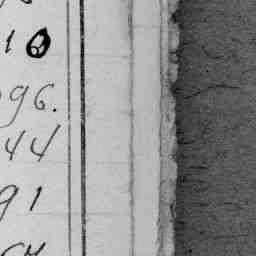 10
96.
44
91